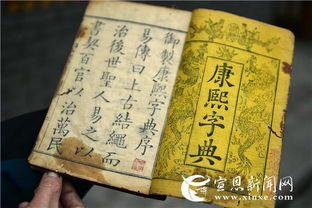 康熙字典
御製康熙字典序
易傳曰上古結繩而
治後世聖人易之以
書契百官以治萬民
宣恩新闻网
www.xinxe.com